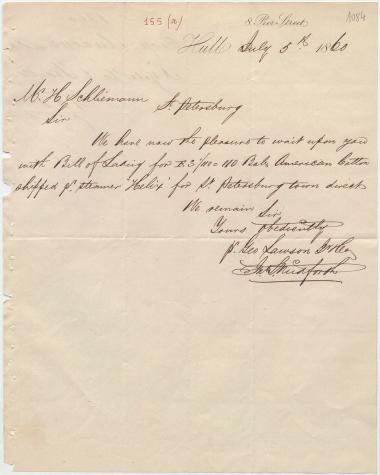 155 (a)
8 Pier Street
1084
Hull July 5th 1860
Mr. H. Schliemann St. Petersburg
Sir
We have now the pleasure to wait upon you
with Bill of Lading for 110 Bales American Cotton
shipped pr. steamer 'Helix' for St. Petersburg town direct
We remain Sir,
Yours Obediently
p. Geo Lawson